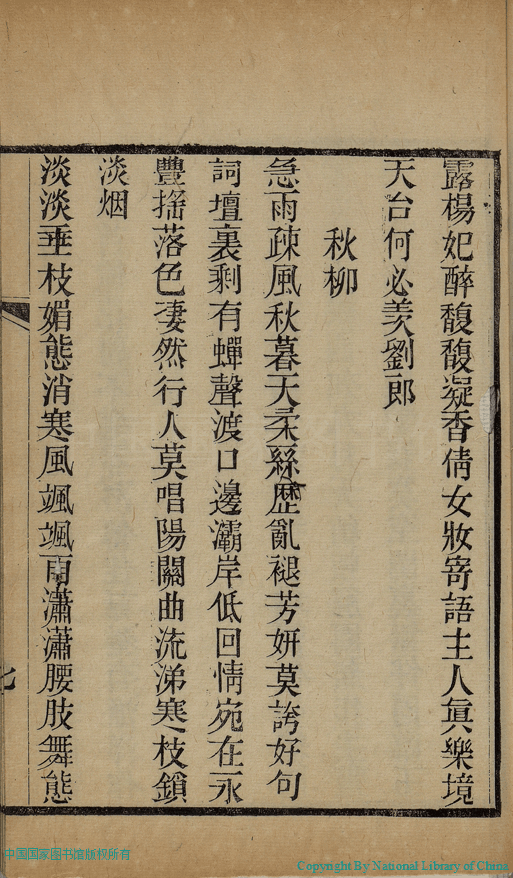 露楊妃醉馥馥凝香倩女妝寄語主人眞樂境
天台何必羨劉郎
秋柳
急雨疎風秋暮天柔絲歷亂褪芳姸莫誇好句
詞壇裏剩有蟬聲渡口邊灞岸低回情宛在永
豐搖落色淒然行人莫唱陽關曲流涕寒枝鎖
淡烟
淡淡垂枝媚態消寒風颯颯雨瀟瀟腰肢舞態
七
中国国家图书馆版权所有
Copyright By National Library of China